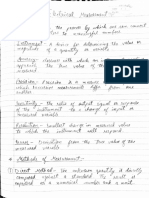 Technical Measurement
the process by which one can convert
to meaningful number
Instrument - a device for determining the value or
magnitude of a quantity or variable
Accuracy - closeness with which an
Precision - Precision is a measure of the
which instrument differ from one
another.
Sensitivity - the ratio of output signal or response
of the instrument to a change of input or
measured variable
Resolution - Smallest change in measured value
to which the instrument will respond.
Error - Deviation from the true value of the
measured variable.
Methods of Measurement -
① Direct Method - The unknown quantity is directly
compared against a standard. The result is
expressed as a numerical number and a
unit.